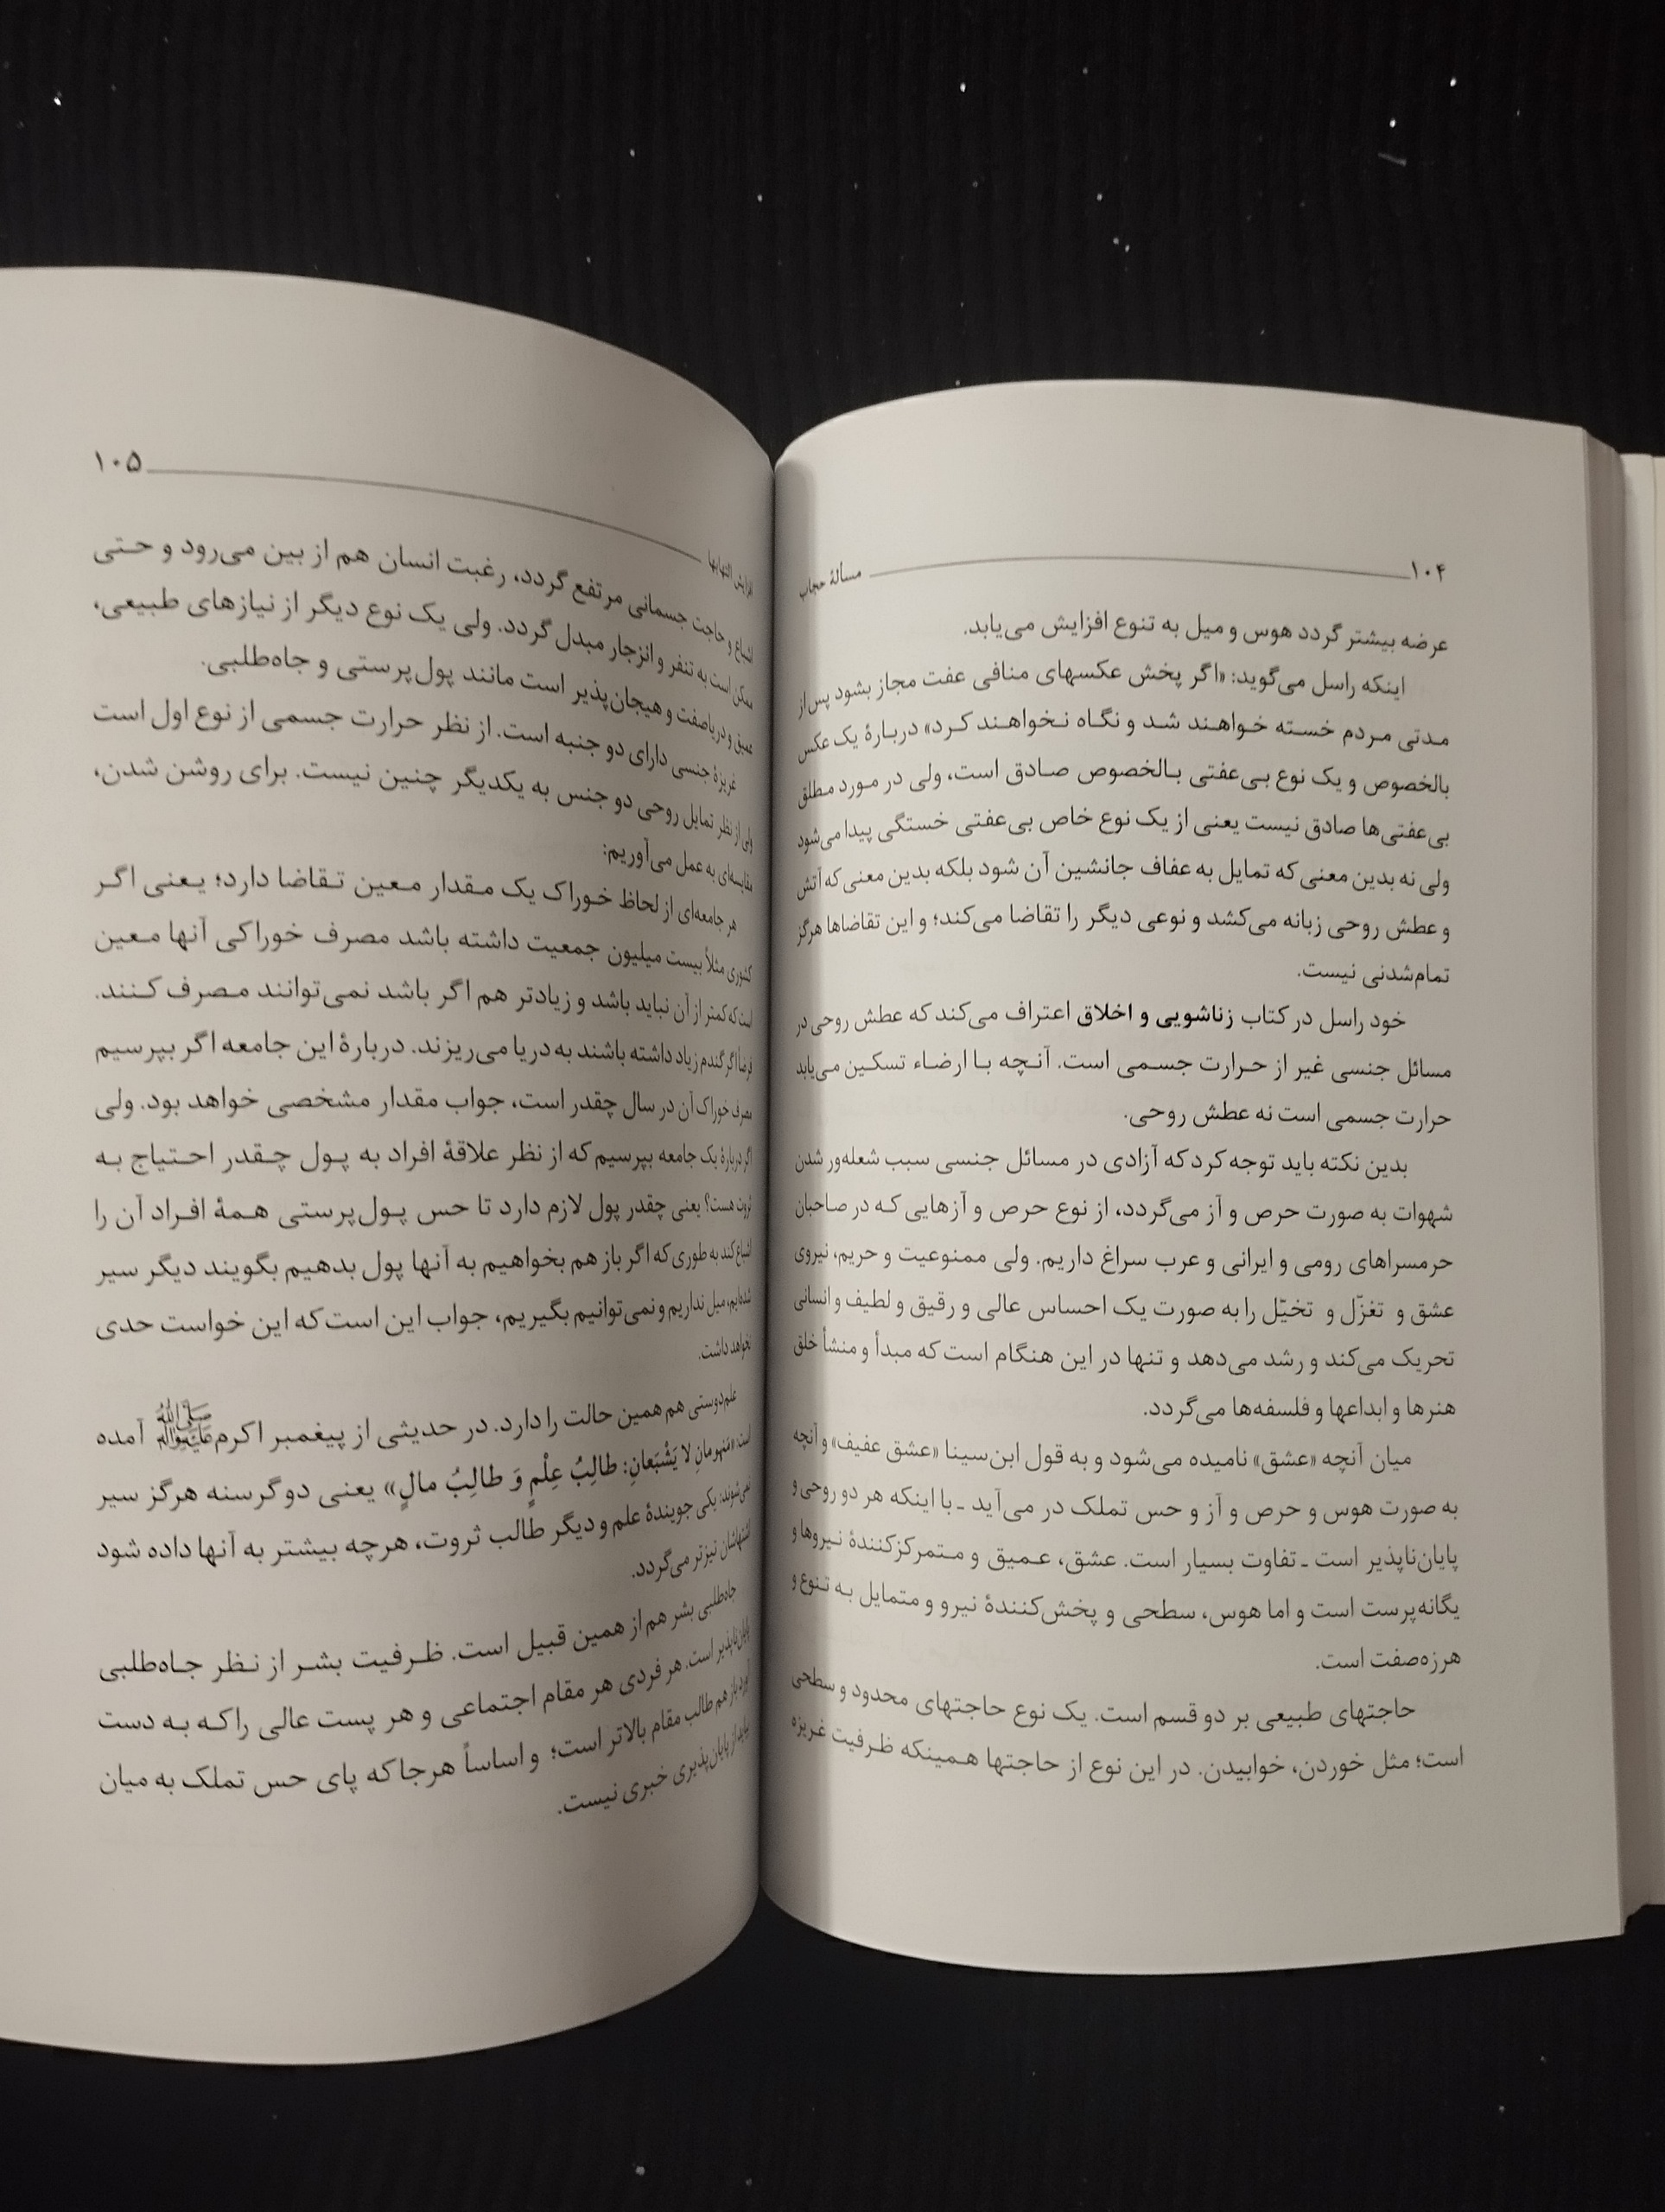 ۱۰۴
مسألهٔ حجاب
عرضه بیشتر گردد هوس و میل به تنوع افزایش می‌یابد.
اینکه راسل می‌گوید: «اگر پخش عکسهای منافی عفت مجاز بشود پس از
مدتی مردم خسته خواهند شد و نگاه نخواهند کرد» دربارهٔ یک عکس
بالخصوص و یک نوع بی‌عفتی بالخصوص صادق است، ولی در مورد مطلق
بی‌عفتی‌ها صادق نیست یعنی از یک نوع خاص بی‌عفتی خستگی پیدا می‌شود
ولی نه بدین معنی که تمایل به عفاف جانشین آن شود بلکه بدین معنی که آتش
و عطش روحی زبانه می‌کشد و نوعی دیگر را تقاضا می‌کند؛ و این تقاضاها هرگز
تمام‌شدنی نیست.
خود راسل در کتاب زناشویی و اخلاق اعتراف می‌کند که عطش روحی در
مسائل جنسی غیر از حرارت جسمی است. آنچه با ارضاء تسکین می‌یابد
حرارت جسمی است نه عطش روحی.
بدین نکته باید توجه کرد که آزادی در مسائل جنسی سبب شعله‌ور شدن
شهوات به صورت حرص و آز می‌گردد، از نوع حرص و آزهایی که در صاحبان
حرمسراهای رومی و ایرانی و عرب سراغ داریم. ولی ممنوعیت و حریم، نیروی
عشق و تغزّل و تخیّل را به صورت یک احساس عالی و رقیق و لطیف و انسانی
تحریک می‌کند و رشد می‌دهد و تنها در این هنگام است که مبدأ و منشأ خلق
هنرها و ابداعها و فلسفه‌ها می‌گردد.
میان آنچه «عشق» نامیده می‌شود و به قول ابن‌سینا «عشق عفیف» و آنچه
به صورت هوس و حرص و آز و حس تملک در می‌آید ـ با اینکه هر دو روحی و
پایان‌ناپذیر است ـ تفاوت بسیار است. عشق، عمیق و متمرکزکنندهٔ نیروها و
یگانه‌پرست است و اما هوس، سطحی و پخش‌کنندهٔ نیرو و متمایل به تنوع و
هرزه‌صفت است.
حاجتهای طبیعی بر دو قسم است. یک نوع حاجتهای محدود و سطحی
است؛ مثل خوردن، خوابیدن. در این نوع از حاجتها همینکه ظرفیت غریزه
افزایش التهابها
۱۰۵
اشباع و حاجت جسمانی مرتفع گردد، رغبت انسان هم از بین می‌رود و حتی
ممکن است به تنفر و انزجار مبدل گردد. ولی یک نوع دیگر از نیازهای طبیعی،
عمیق و دریاصفت و هیجان‌پذیر است مانند پول‌پرستی و جاه‌طلبی.
غریزهٔ جنسی دارای دو جنبه است. از نظر حرارت جسمی از نوع اول است
ولی از نظر تمایل روحی دو جنس به یکدیگر چنین نیست. برای روشن شدن،
مقایسه‌ای به عمل می‌آوریم:
هر جامعه‌ای از لحاظ خوراک یک مقدار معین تقاضا دارد؛ یعنی اگر
کشوری مثلاً بیست میلیون جمعیت داشته باشد مصرف خوراکی آنها معین
است که کمتر از آن نباید باشد و زیادتر هم اگر باشد نمی‌توانند مصرف کنند.
فرضا اگر گندم زیاد داشته باشند به دریا می‌ریزند. دربارهٔ این جامعه اگر بپرسیم
مصرف خوراک آن در سال چقدر است، جواب مقدار مشخصی خواهد بود. ولی
اگر دربارهٔ یک جامعه بپرسیم که از نظر علاقهٔ افراد به پول چقدر احتیاج به
ثروت هست؟ یعنی چقدر پول لازم دارد تا حس پول‌پرستی همهٔ افراد آن را
اشباع کند به طوری که اگر باز هم بخواهیم به آنها پول بدهیم بگویند دیگر سیر
شده‌ایم، میل نداریم و نمی‌توانیم بگیریم، جواب این است که این خواست حدی
نخواهد داشت.
علم‌دوستی هم همین حالت را دارد. در حدیثی از پیغمبر اکرم ﷺ آمده
است: «مَنهومانِ لا یَشْبَعانِ: طالِبُ عِلْمٍ وَ طالِبُ مالٍ» یعنی دو گرسنه هرگز سیر
نمی‌شوند: یکی جویندهٔ علم و دیگر طالب ثروت، هرچه بیشتر به آنها داده شود
اشتهاشان تیزتر می‌گردد.
جاه‌طلبی بشر هم از همین قبیل است. ظرفیت بشر از نظر جاه‌طلبی
پایان‌ناپذیر است. هر فردی هر مقام اجتماعی و هر پست عالی را که به دست
آورد باز هم طالب مقام بالاتر است؛ و اساساً هرجا که پای حس تملک به میان
بیاید از پایان‌پذیری خبری نیست.